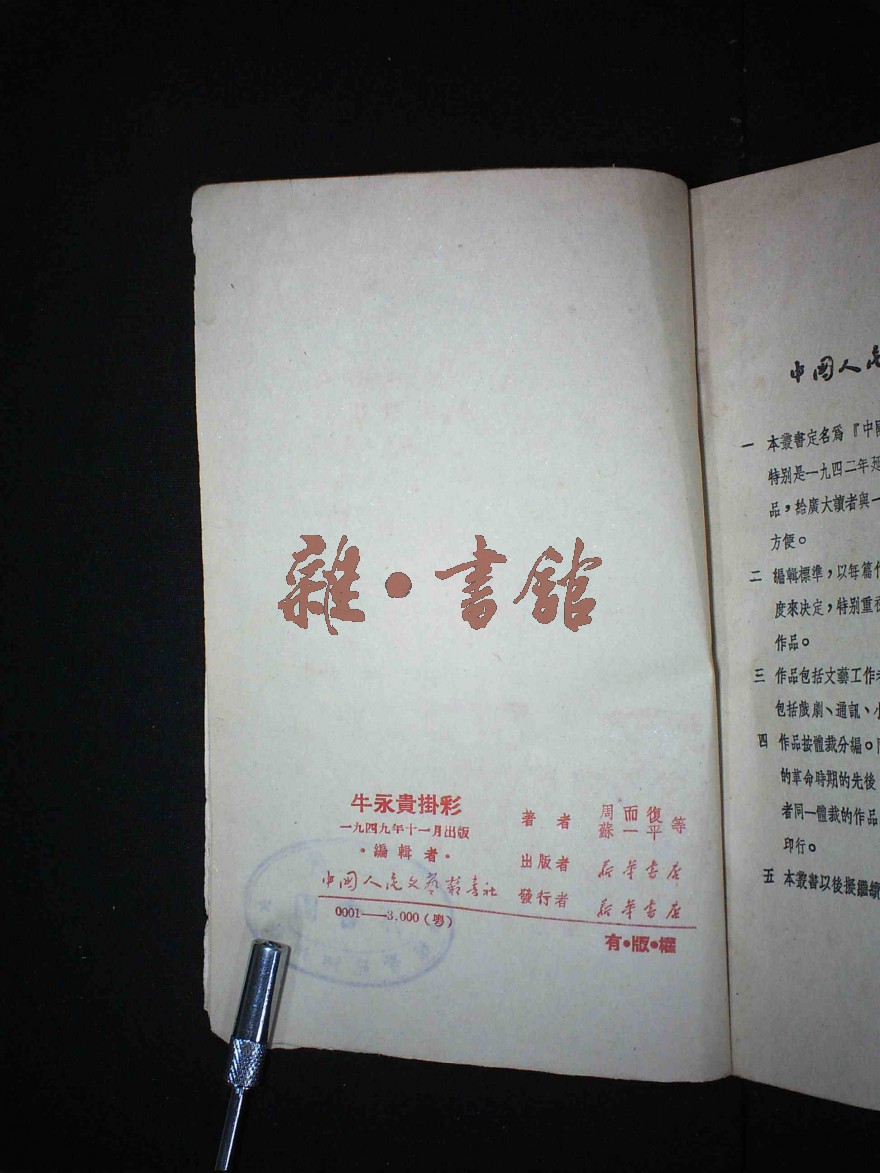 雜·書舘
牛永貴掛彩
一九四九年十一月出版
·編輯者·
中國人民文藝叢書社
0001——3.000(粵)
著者 周而復 蘇一平 等
出版者 新華書店
發行者 新華書店
有·版·權
中國人民
一 本叢書定名爲『中國
特別是一九四二年延
品，給廣大讀者與一
方便。
二 編輯標準，以每篇作
度來決定，特別重視
作品。
三 作品包括文藝工作者
包括戲劇、通訊、小
四 作品按體裁分編。
的革命時期的先後
者同一體裁的作品
印行。
五 本叢書以後擬繼續